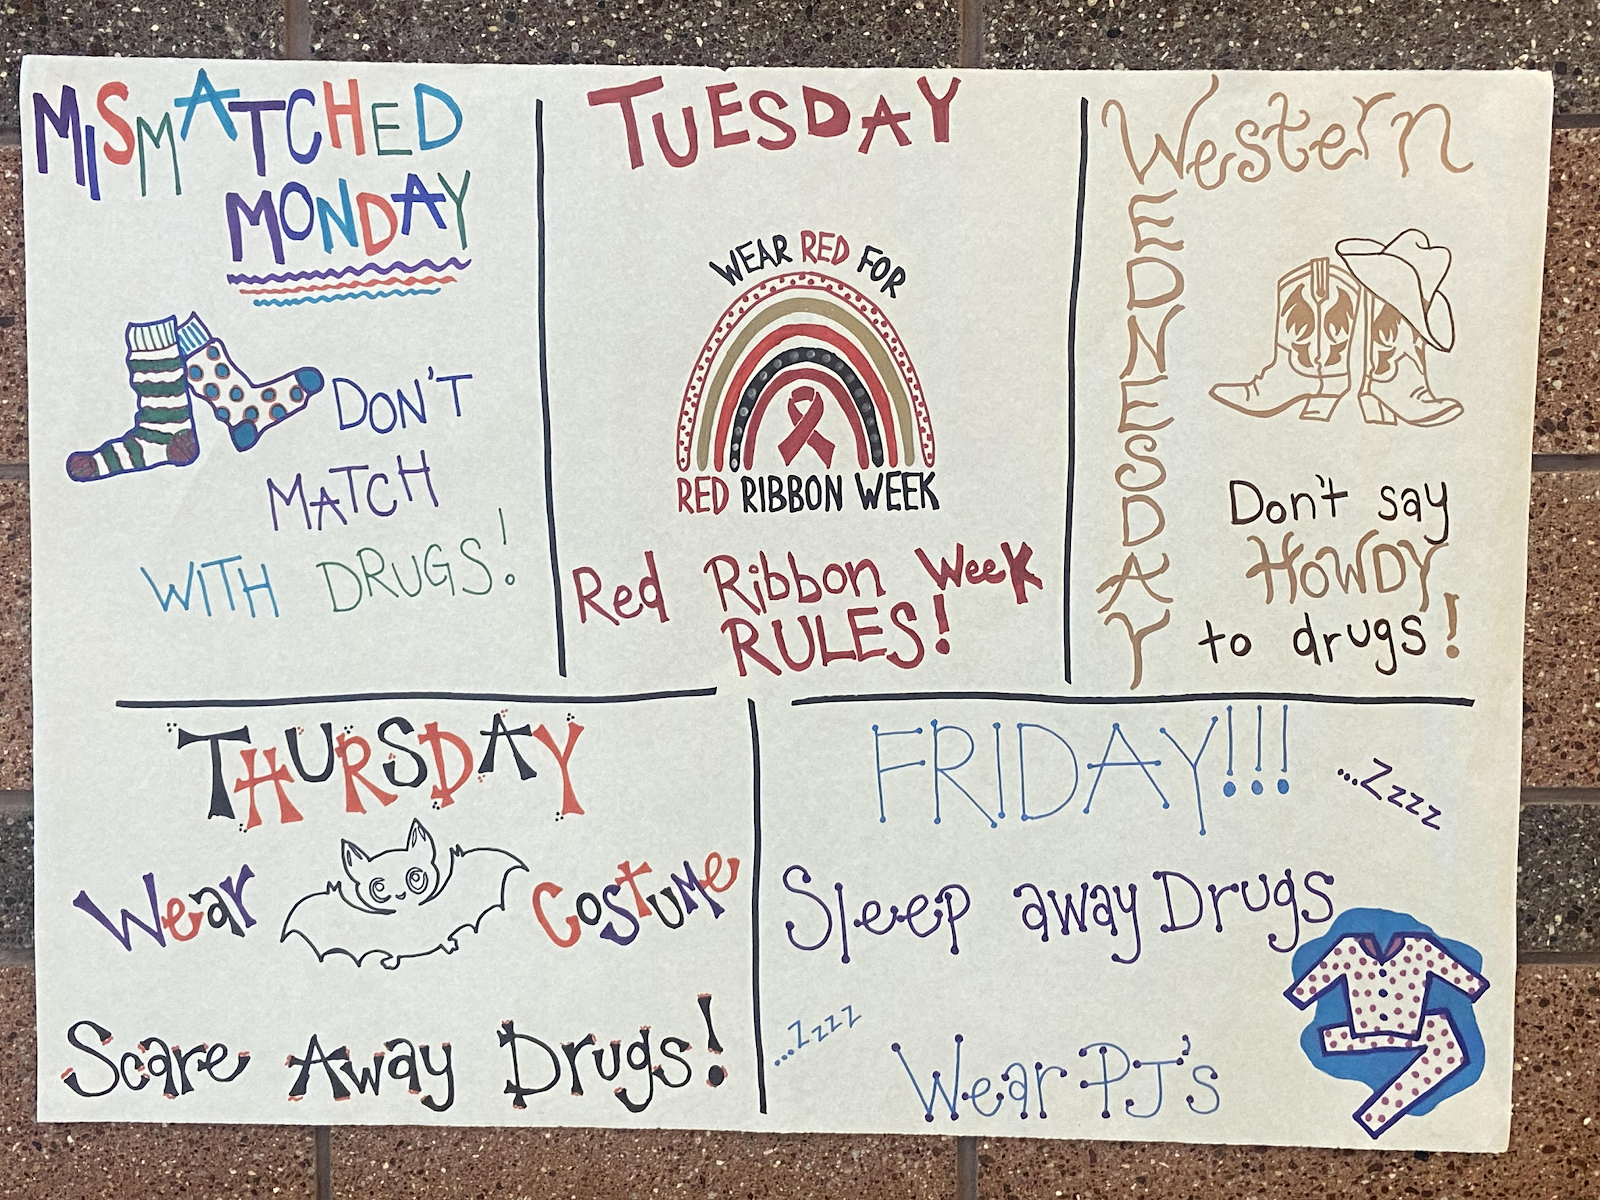 MISMATCHED
MONDAY
DON'T
MATCH
WITH DRUGS!
TUESDAY
WEAR RED FOR
RED RIBBON WEEK
Red Ribbon Week
RULES!
Western
WEDNESDAY
Don't say
HOWDY
to drugs!
THURSDAY
Wear Costume
Scare Away Drugs!
FRIDAY!!!
...Zzzz
Sleep away Drugs
...Zzzz
Wear PJ's